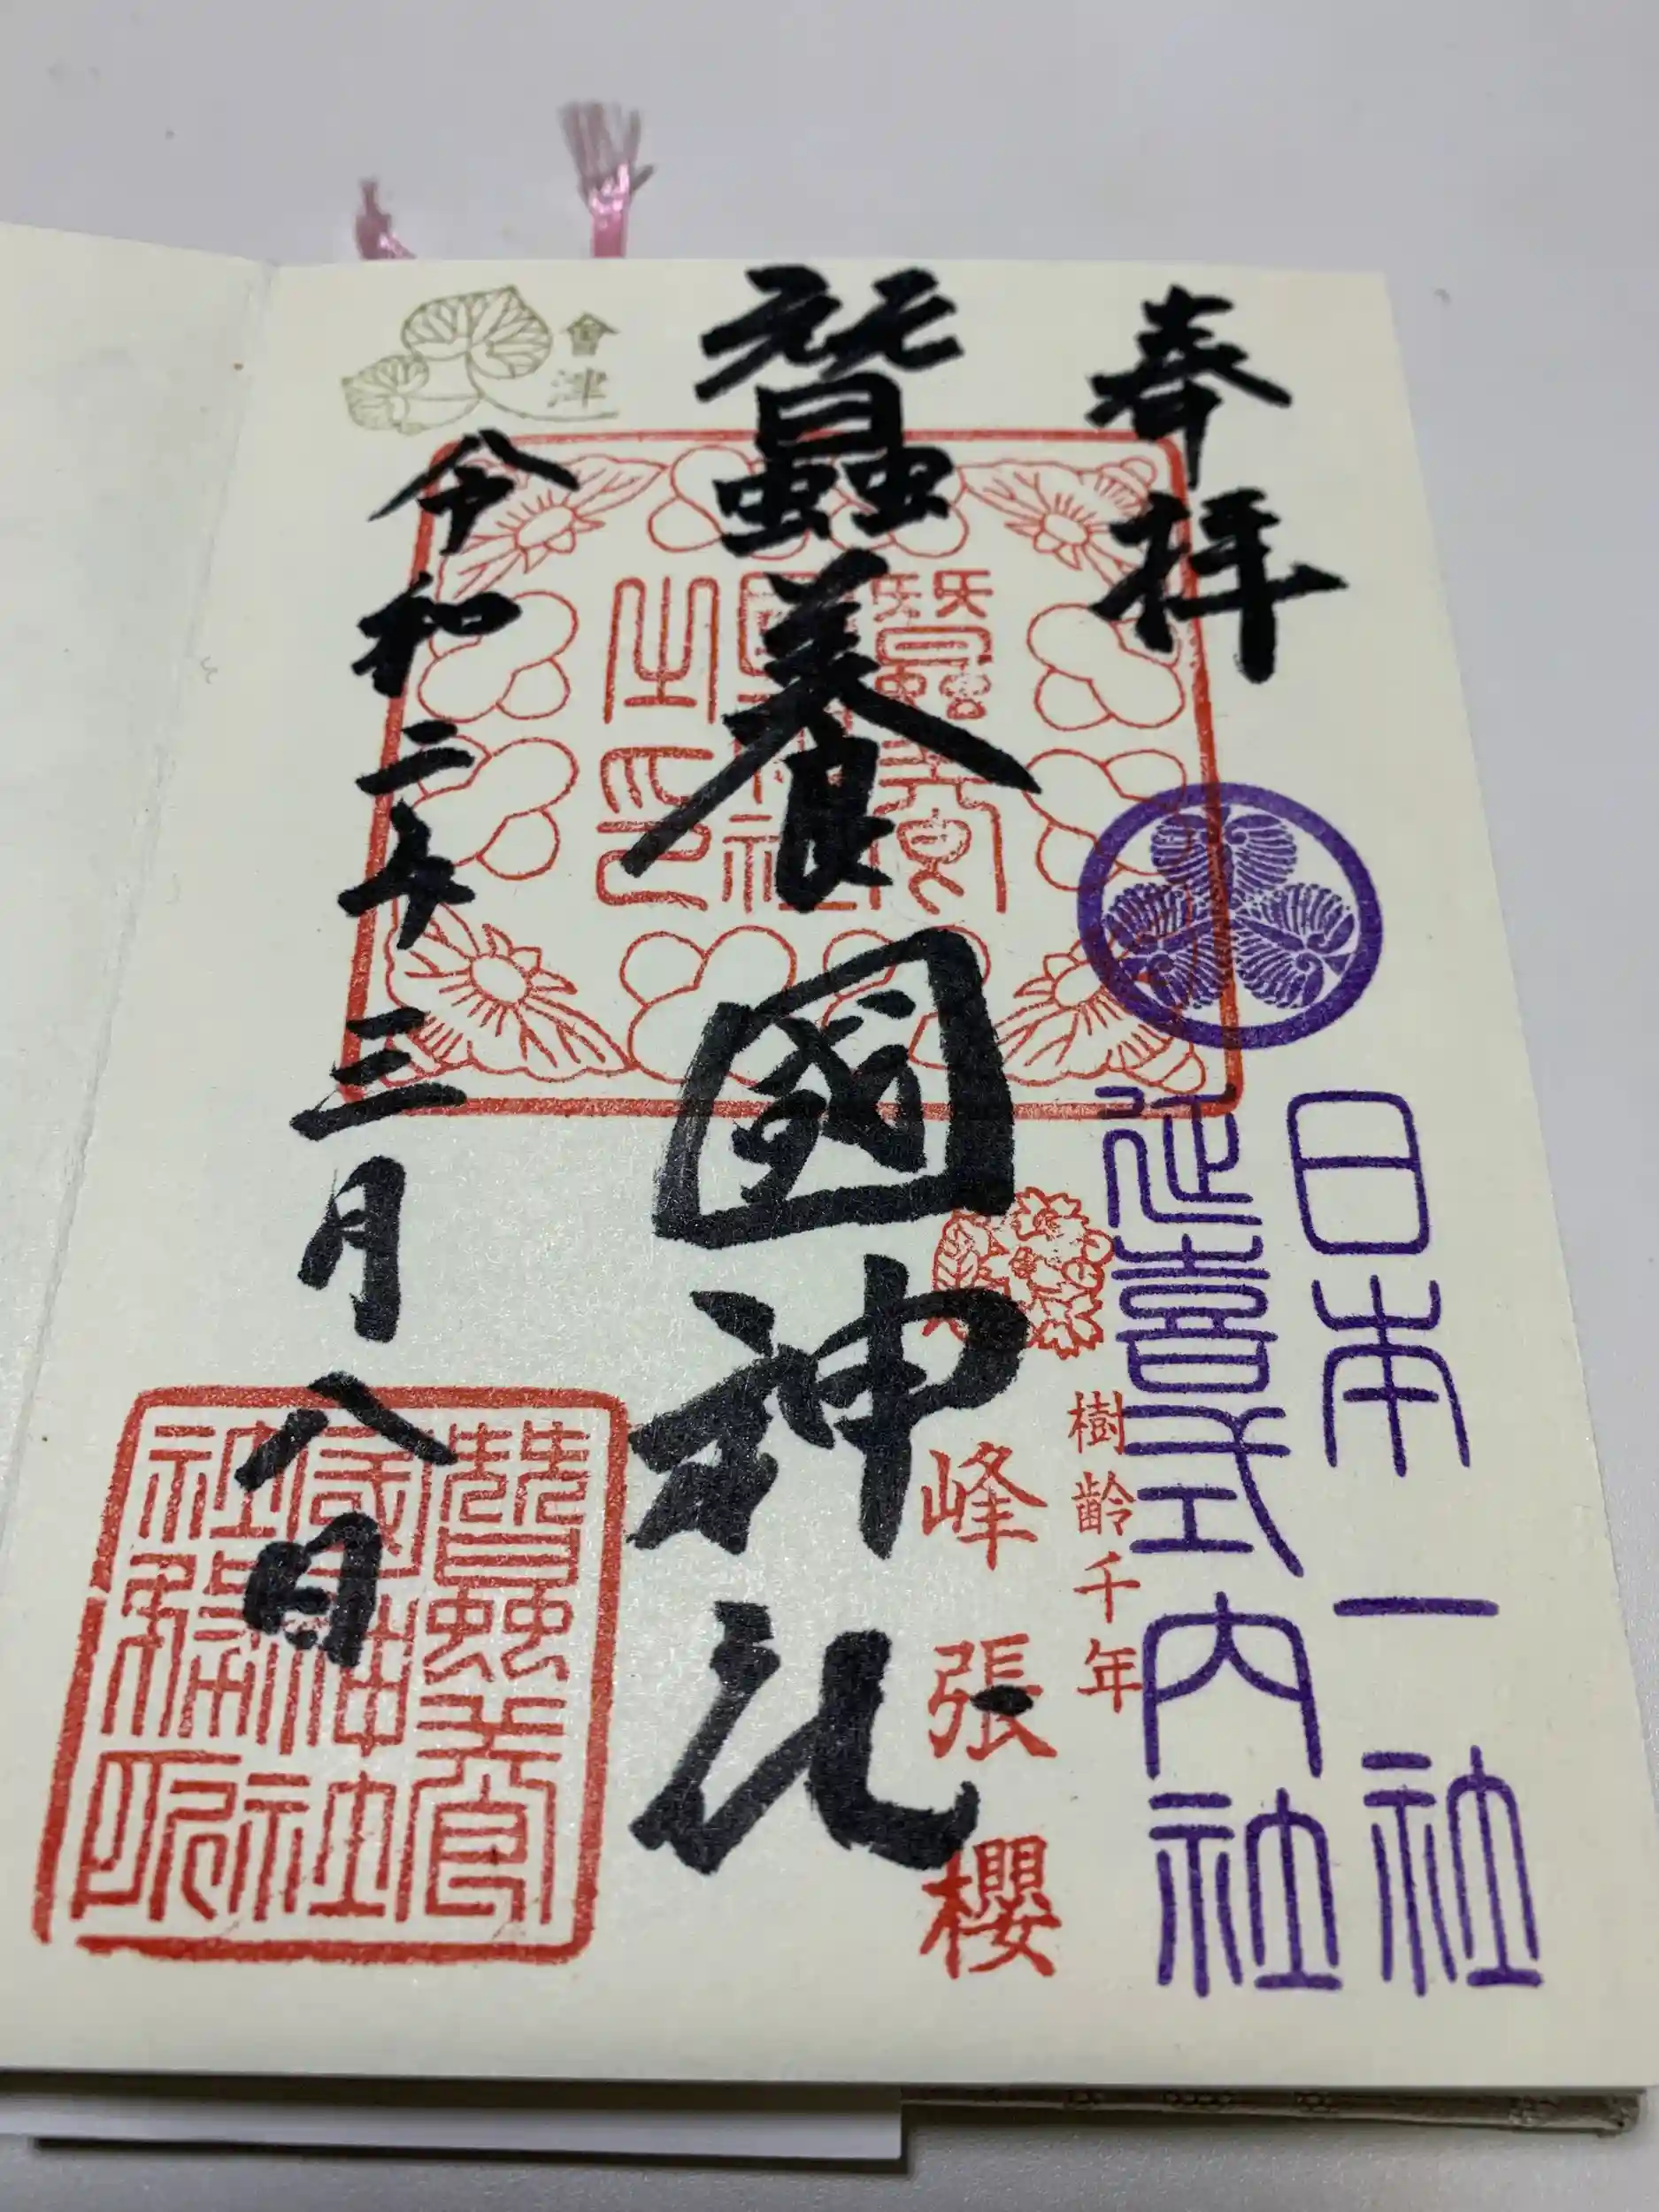 奉拝
日本一社
延喜式内社
樹齢千年
峰張櫻
蠶養國神社
蠶養國神社之印
會津
令和二年三月八日
蠶養國神社社務所